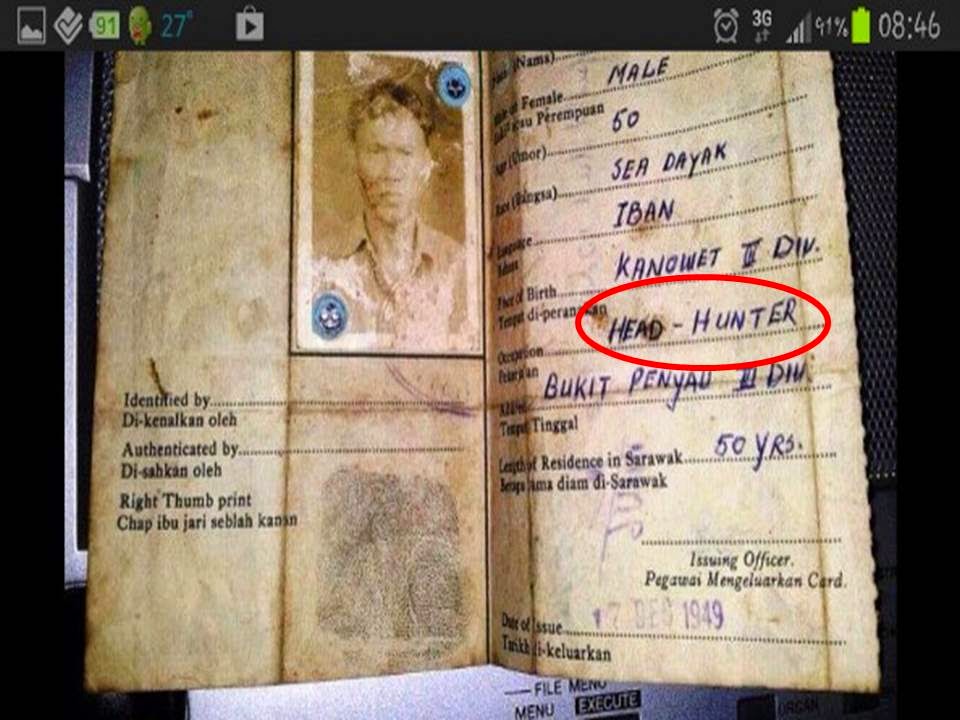 91 27° 3G 91% 08:46
(Nama)
MALE
Female
atau Perempuan
50
(Umor)
SEA DAYAK
Race (Bangsa)
IBAN
Language
KANOWET III DIV.
Place of Birth
Tempat di-peranakan
HEAD-HUNTER
Occupation
BUKIT PENYAU III DIV.
Tempat Tinggal
Length of Residence in Sarawak 50 YRS.
Berapa lama diam di-Sarawak
Issuing Officer.
Pegawai Mengeluarkan Card.
Date of Issue 17 DEC 1949
di-keluarkan
Identified by
Di-kenalkan oleh
Authenticated by
Di-sahkan oleh
Right Thumb print
Chap ibu jari seblah kanan
FILE MENU
MENU EXECUTE